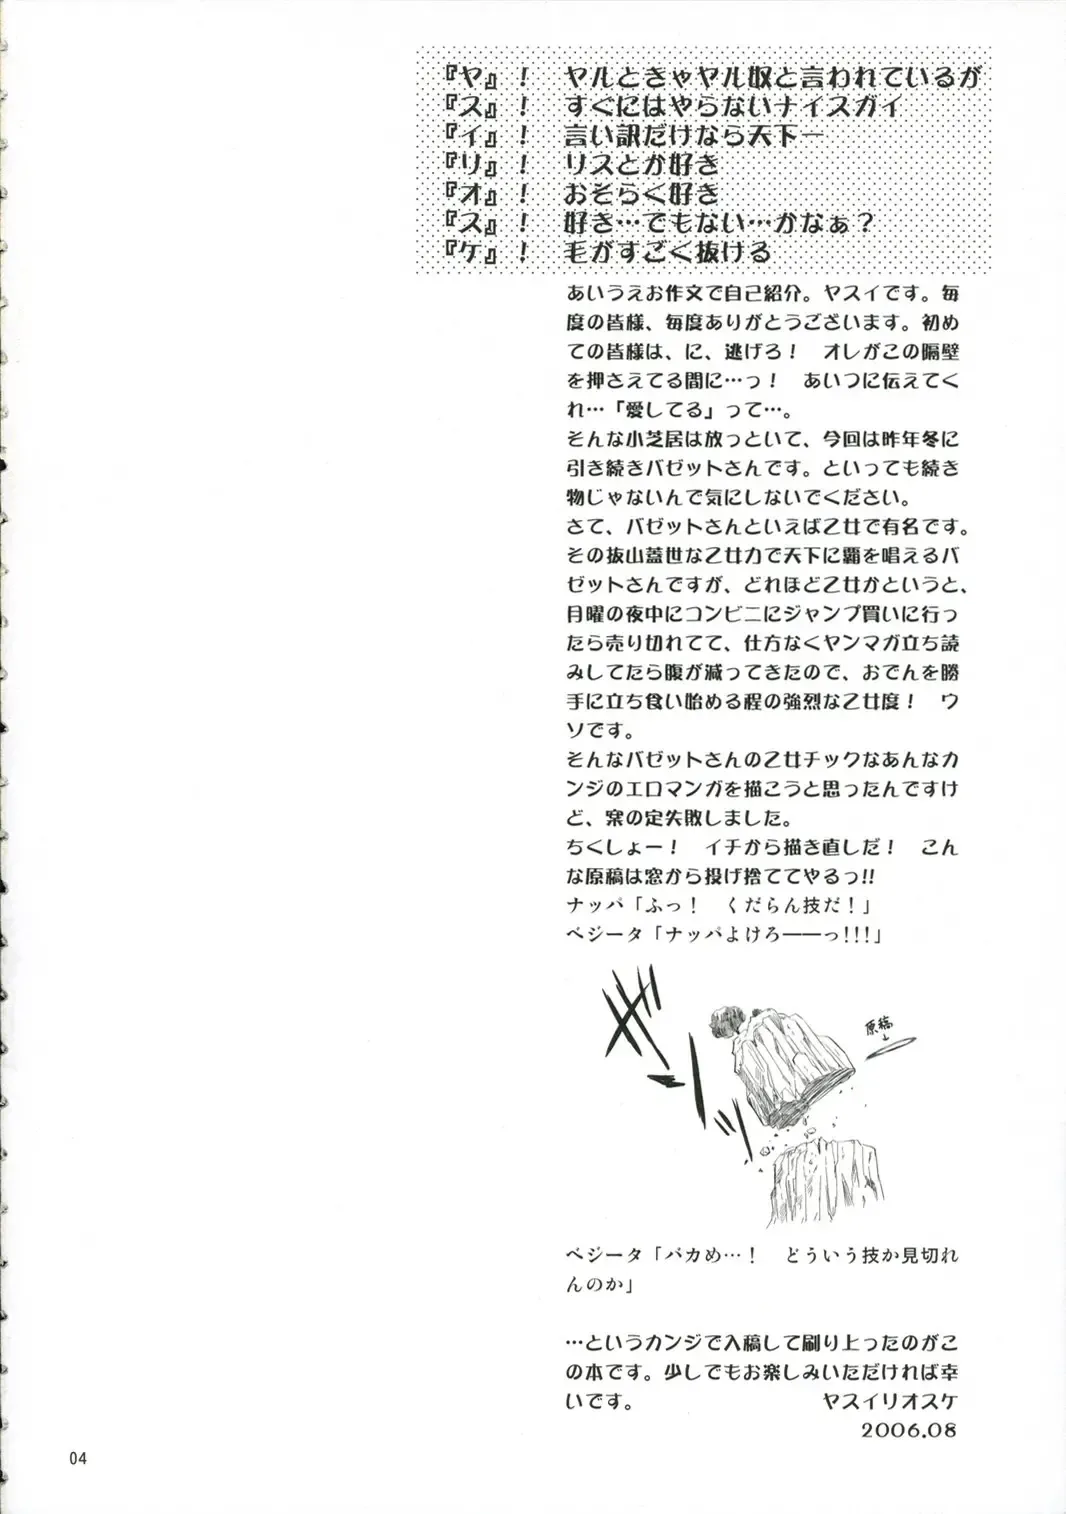 『ヤ』！　ヤルときゃヤル奴と言われているが
『ス』！　すぐにはやらないナイスガイ
『イ』！　言い訳だけなら天下一
『リ』！　リスとか好き
『オ』！　おそらく好き
『ス』！　好き…でもない…かなぁ？
『ケ』！　毛がすごく抜ける
あいうえお作文で自己紹介。ヤスイです。毎
度の皆様、毎度ありがとうございます。初め
ての皆様は、に、逃げろ！　オレがこの隔壁
を押さえてる間に…っ！　あいつに伝えてく
れ…「愛してる」って…。
そんな小芝居は放っといて、今回は昨年冬に
引き続きバゼットさんです。といっても続き
物じゃないんで気にしないでください。
さて、バゼットさんといえば乙女で有名です。
その抜山蓋世な乙女力で天下に覇を唱えるバ
ゼットさんですが、どれほど乙女かというと、
月曜の夜中にコンビニにジャンプ買いに行っ
たら売り切れてて、仕方なくヤンマガ立ち読
みしてたら腹が減ってきたので、おでんを勝
手に立ち食い始める程の強烈な乙女度！　ウ
ソです。
そんなバゼットさんの乙女チックなあんなカ
ンジのエロマンガを描こうと思ったんですけ
ど、案の定失敗しました。
ちくしょー！　イチから描き直しだ！　こん
な原稿は窓から投げ捨ててやるっ!!
ナッパ「ふっ！　くだらん技だ！」
ベジータ「ナッパよけろーーっ!!!」
原稿
ベジータ「バカめ…！　どういう技か見切れ
んのか」
…というカンジで入稿して刷り上ったのがこ
の本です。少しでもお楽しみいただければ幸
いです。　ヤスイリオスケ
2006.08
04